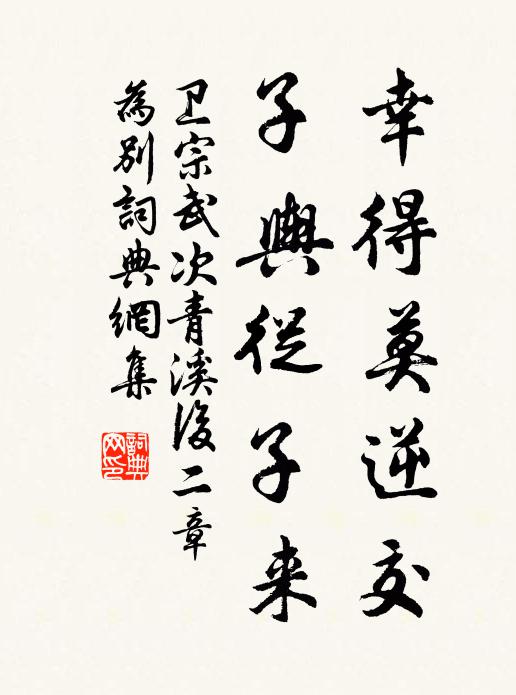 幸得莫逆交
子輿從子来
卫宗武次青溪後二章
為別詞典網集
詞典网印